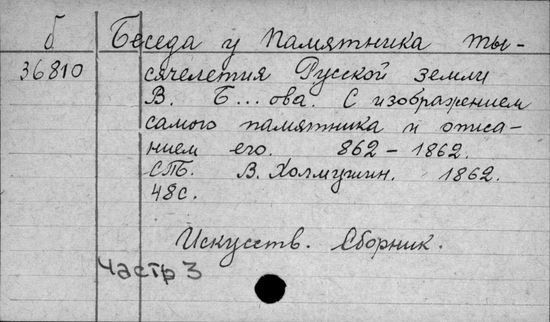 б Беседа у памятника ты-
36810 сячелетия Русской земли
В. Б...ова. С изображением
самого памятника и описа-
нием его. 862 - 1862.
СПб. В. Холмушин. 1862.
48с.
Искусств. Сборник.
Часть 3